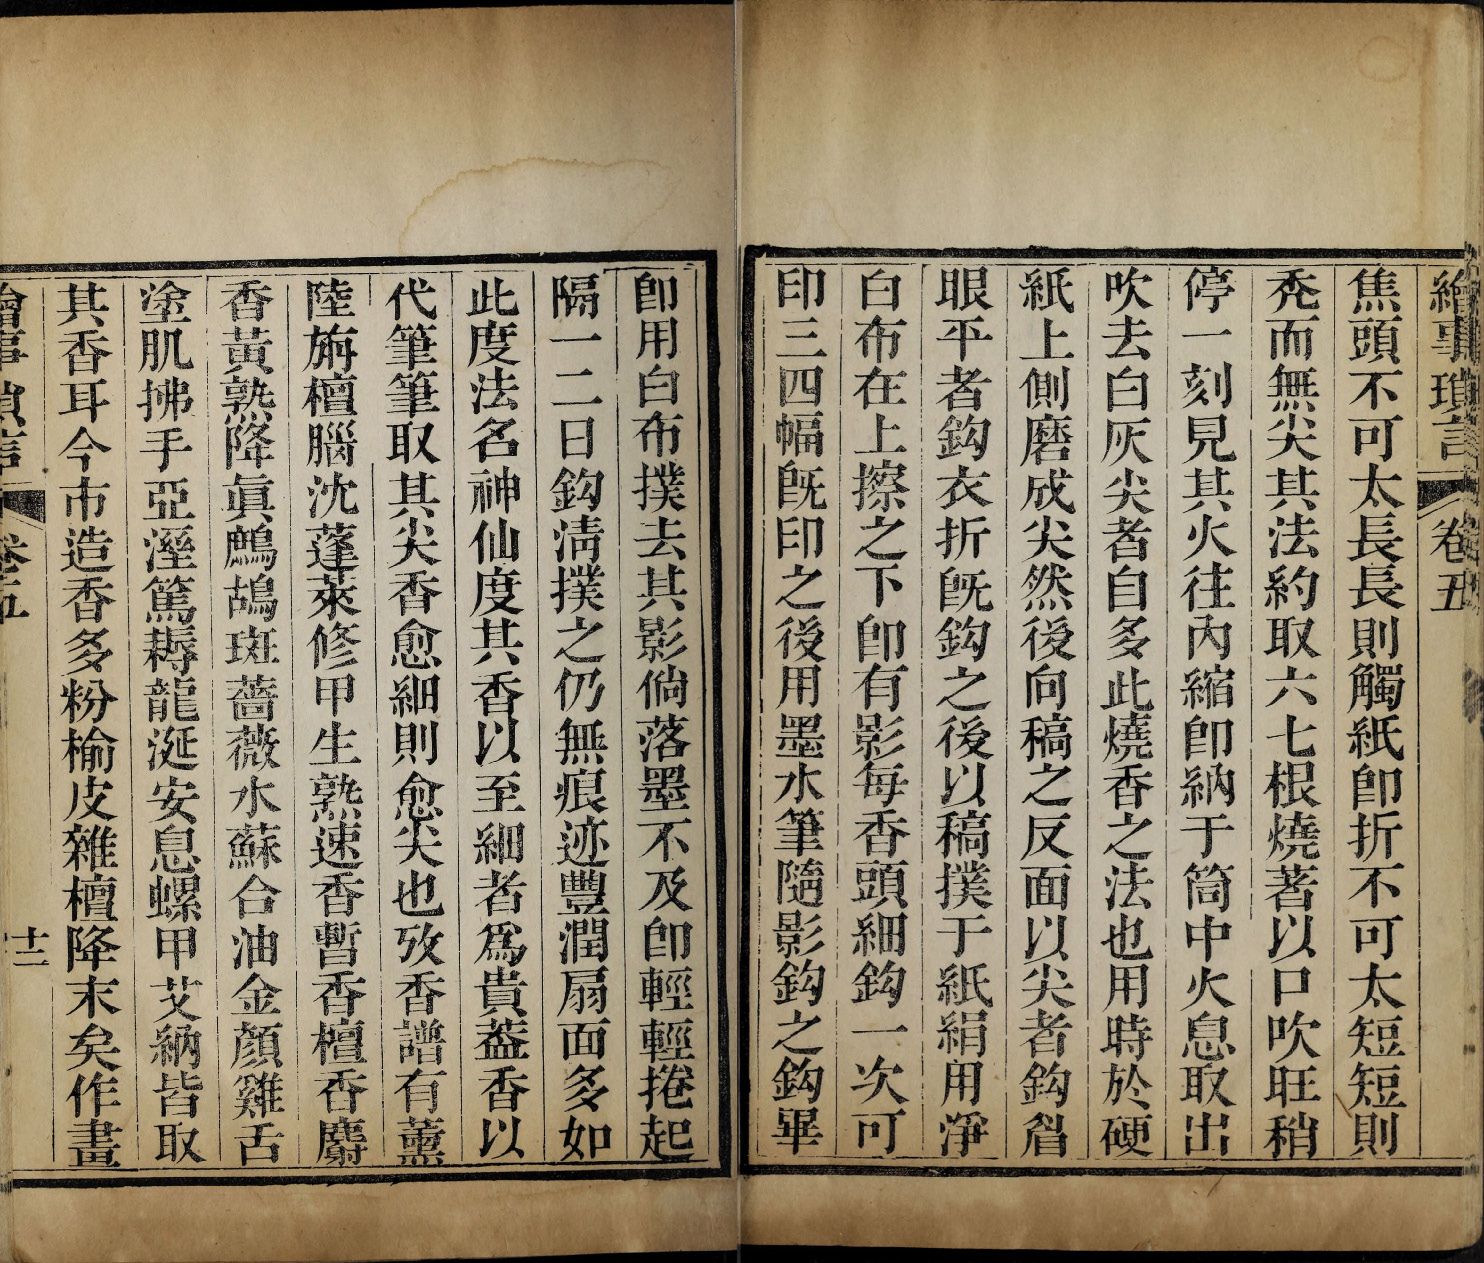 繪事瑣言 卷五
焦頭不可太長長則觸紙卽折不可太短短則
禿而無尖其法約取六七根燒著以口吹旺稍
停一刻見其火往內縮卽納于筒中火息取出
吹去白灰尖者自多此燒香之法也用時於硬
紙上側磨成尖然後向稿之反面以尖者鈎眉
眼平者鈎衣折旣鈎之後以稿撲于紙絹用淨
白布在上擦之下卽有影每香頭細鈎一次可
印三四幅旣印之後用墨水筆隨影鈎之鈎畢
卽用白布撲去其影倘落墨不及卽輕輕捲起
隔一二日鈎淸撲之仍無痕迹豐潤扇面多如
此度法名神仙度其香以至細者爲貴葢香以
代筆筆取其尖香愈細則愈尖也攷香譜有薰
陸旃檀腦沈蓬萊修甲生熟速香暫香檀香麝
香黃熟降眞鷓鴣斑薔薇水蘇合油金顏雞舌
塗肌拂手亞溼篤耨龍涎安息螺甲艾納皆取
其香耳今市造香多粉榆皮雜檀降末矣作畫
繪事瑣言 卷五 十二